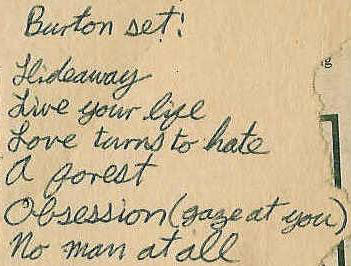 Burton set:
Hideaway
Live your life
Love turns to hate
A forest
Obsession (gaze at you)
No man at all
g